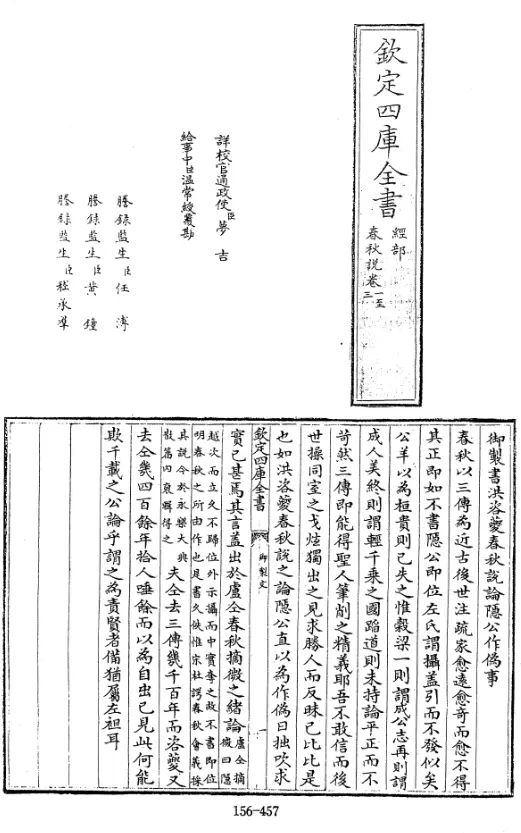 欽定四庫全書
經部
春秋説卷一至三
詳校官通政使臣夢吉
給事中臣温常綬覆勘
謄録監生臣任溥
謄録監生臣黄鐘
謄録監生臣嵇承羣
御製書洪咨夔春秋説論隠公作偽事
春秋以三傳為近古後世注疏家愈遠愈竒而愈不得
其正即如不書隠公即位左氏謂攝盖引而不發似矣
公羊以為桓貴則已失之惟穀梁一則謂成公志再則謂
成人美終則謂輕千乗之國蹈道則未持論平正而不
苛然三傳即能得聖人筆削之精義耶吾不敢信而後
世操同室之戈炫獨出之見求勝人而反昧已比比是
也如洪咨夔春秋説之論隠公直以為作偽日拙吹求
欽定四庫全書
御製文
實已甚焉其言盖出於盧仝春秋摘微之緒論盧仝摘微曰隠
越次而立久不歸位外示攝而中實奪之故不書即位
明春秋之所由作也是書久佚惟宋杜諤春秋會義採
其說今於永樂大典
散篇内裒輯得之
夫仝去三傳幾千百年而咨夔又
去仝幾四百餘年拾人唾餘而以為自出已見此何能
欺千載之公論乎謂之為責賢者備猶屬左袒耳
156-457